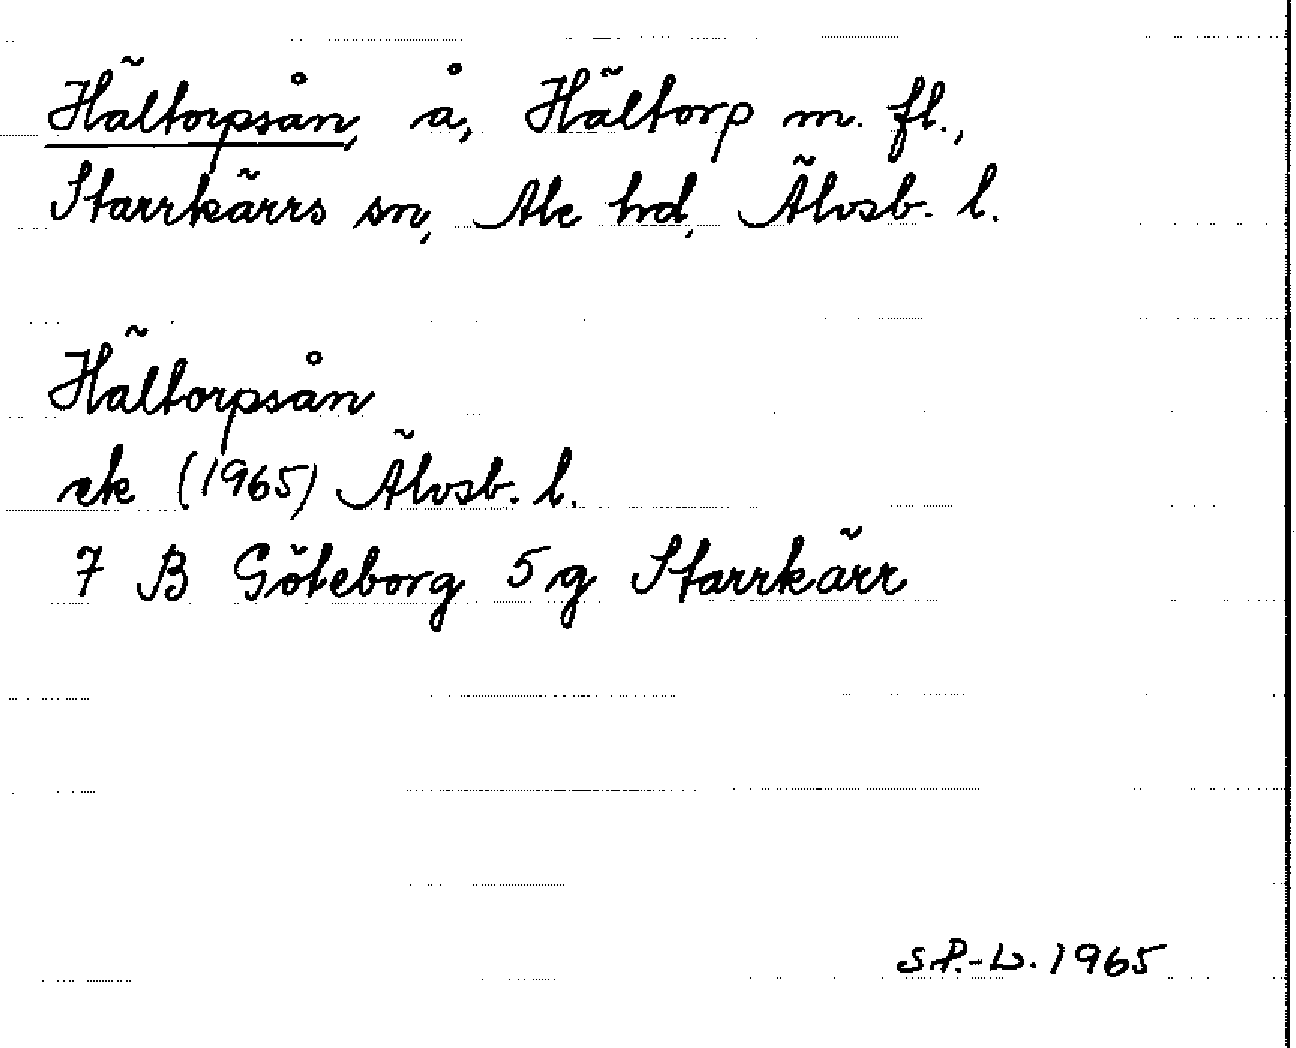 Hältorpsån, å, Hältorp m. fl.,
Starrkärrs sn, Ale hd, Älvsb. l.
Hältorpsån
ek (1965) Älvsb. l.
7 B Göteborg 5 g Starrkärr
S.P.-L. 1965